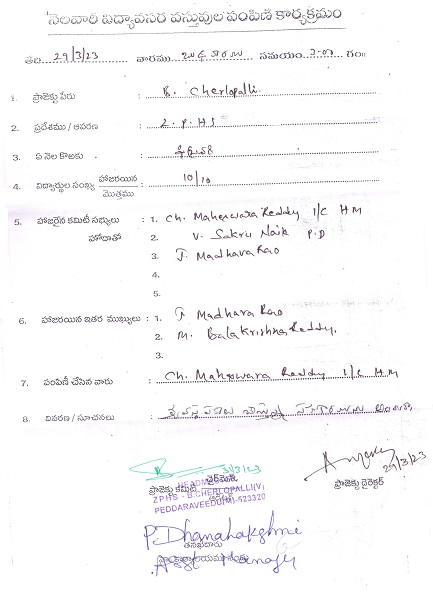 నెలవారీ విద్యావసర వస్తువుల పంపిణీ కార్యక్రమం
తేది. 29/3/23 వారము బుధవారము సమయం 3-00 గం॥
1. ప్రాజెక్టు పేరు : B. Cherlopalli.
2. ప్రదేశము / ఆవరణ : Z.P.H.S
3. ఏ నెల కొఱకు : ఫిబ్రవరి
4. విద్యార్థుల సంఖ్య హాజరయిన / మొత్తము : 10/10
5. హాజరైన కమిటీ సభ్యులు : 1. Ch. Maheswara Reddy I/C HM
హోదాతో 2. V. Sakru Naik P.D
3. J. Madhava Rao
4.
5.
6. హాజరయిన ఇతర ముఖ్యులు : 1. J. Madhava Rao
2. M. Bala Krishna Reddy.
3.
7. పంపిణీ చేసిన వారు : Ch. Maheswara Reddy I/C H M
8. వివరణ / సూచనలు :
3/3/23
HEADMASTER
ప్రాజెక్టు కమిటీ ఛైర్మెన్
ZPHS - B.CHERLOPALLI(V)
PEDDARAVEEDU(M)-523320
29/3/23
ప్రాజెక్టు డైరెక్టర్
P. Dhanalakshmi
తనిఖీదారు
Asst Manager